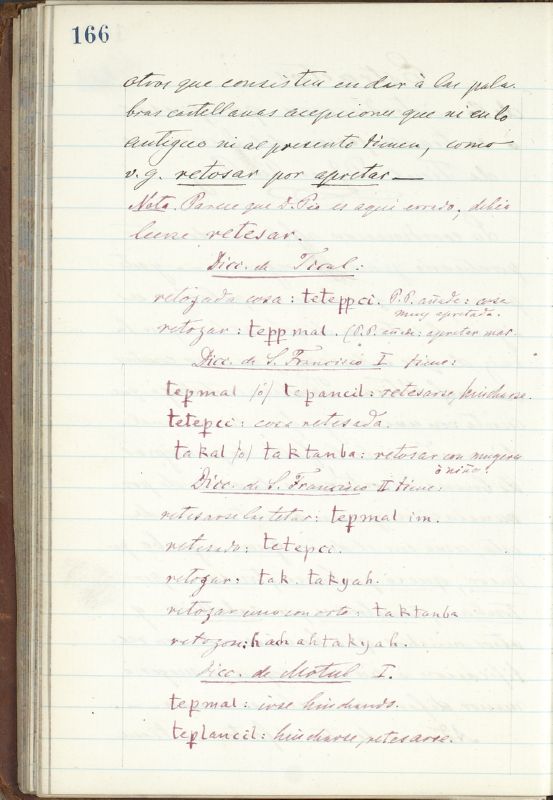 166
otros que consisten en dar à las pala-
bras castellanas acepciones que ni en lo
antiguo ni al presente tienen, como
v.g. retosar por apretar—
Nota. Parece que D. Pio es aqui errado, debia
leerse retesar.
Dicc. de Ticul:
retozada cosa: teteppci. P.P. añade: cosa
muy apretada.
retozar: teppmal. (P.P. añade: apretar mas
Dicc. de S. Francisco I tiene:
tepmal /ó/ tepancil: retesarse, hincharse.
tetepci: cosa retesada.
takal /ó/ taktanba: retosar con mugeres
ò niños.
Dicc. de S. Francisco II tiene:
retesarse las tetas: tepmal im.
retesado: tetepci.
retozar: tak. takyah.
retozar uno con otro: taktanba
retozon: hach ahtakyah.
Dicc. de Motul I.
tepmal: irse hinchando.
teplancil: hincharse, retesarse.